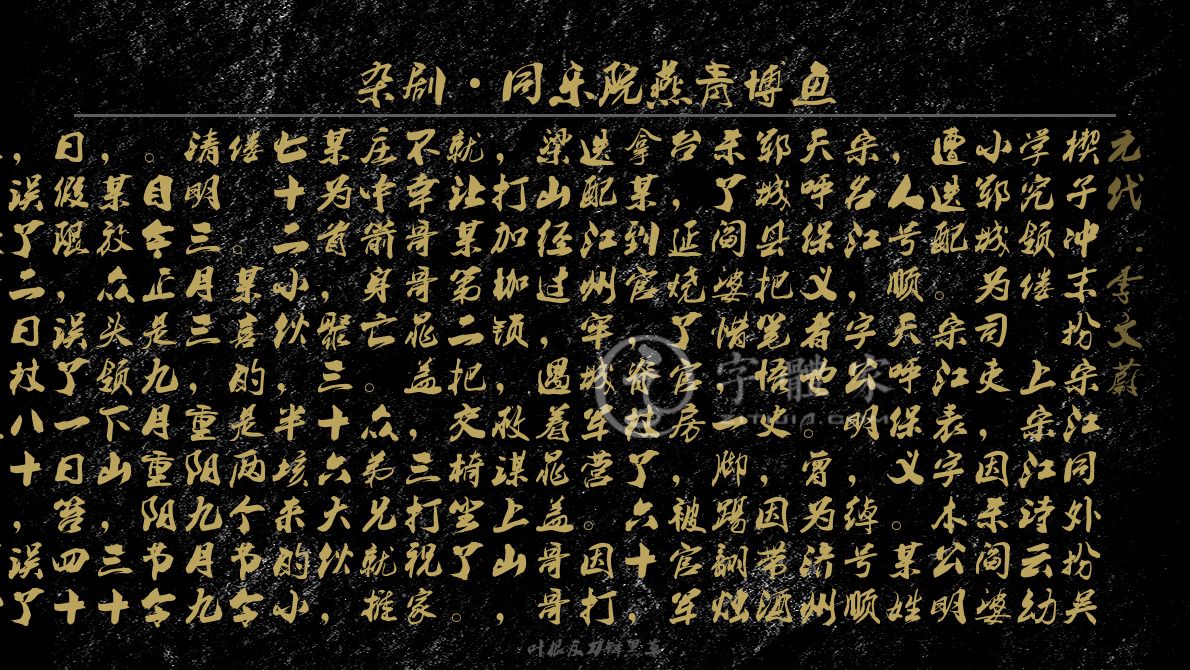 杂剧·同乐院燕青博鱼
元代·李文蔚
楔子冲末扮宋江同外扮吴
学究领偻 上宋江诗云幼
小郓城为司吏，因杀阎婆
遭迭配。宋江表字本公明
，人号顺天呼保义。某姓
宋名江，字公明，绰号顺
天呼保义者。曾为济州
郓城县把笔司吏，因带酒
杀了阎婆惜，一脚踢翻烛
台，延烧了官房，被官军
拿某到官，脊杖了六十，
迭配江州牢城军营。因打
梁山经过，遇着晁盖哥哥
，打加枷锁，救谋上山，
就让某第二把交椅坐了。
不幸哥哥晁盖，三打祝家
庄中箭身亡。众弟兄就推
某为首，聚三十六大伙，
七十二小伙，半垓来的小
偻 。某喜的是两个节令
清明三月三，重阳九月九
。目今正是九月重阳节令
，某放众头领下山，三十
日假限，误了一日，笞四十
，误了二日杖八十，误了
字體家